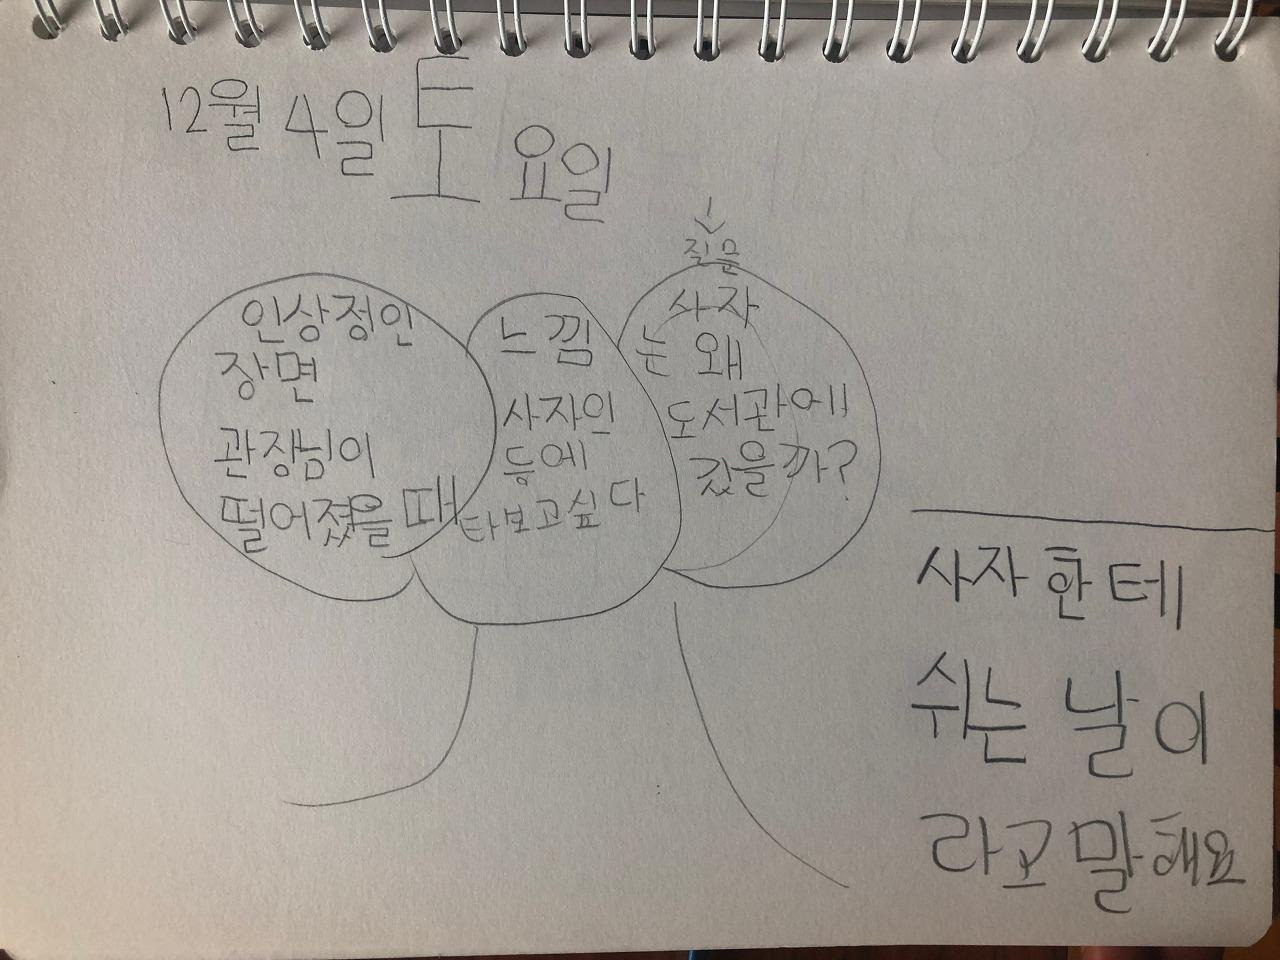 12월 4일 토요일
인상정인
장면
관장님이
떨어졌을 때
느낌
사자의
등에
타보고싶다
질문
사자
는 왜
도서관에
갔을까?
사자한테
쉬는 날이
라고 말해요